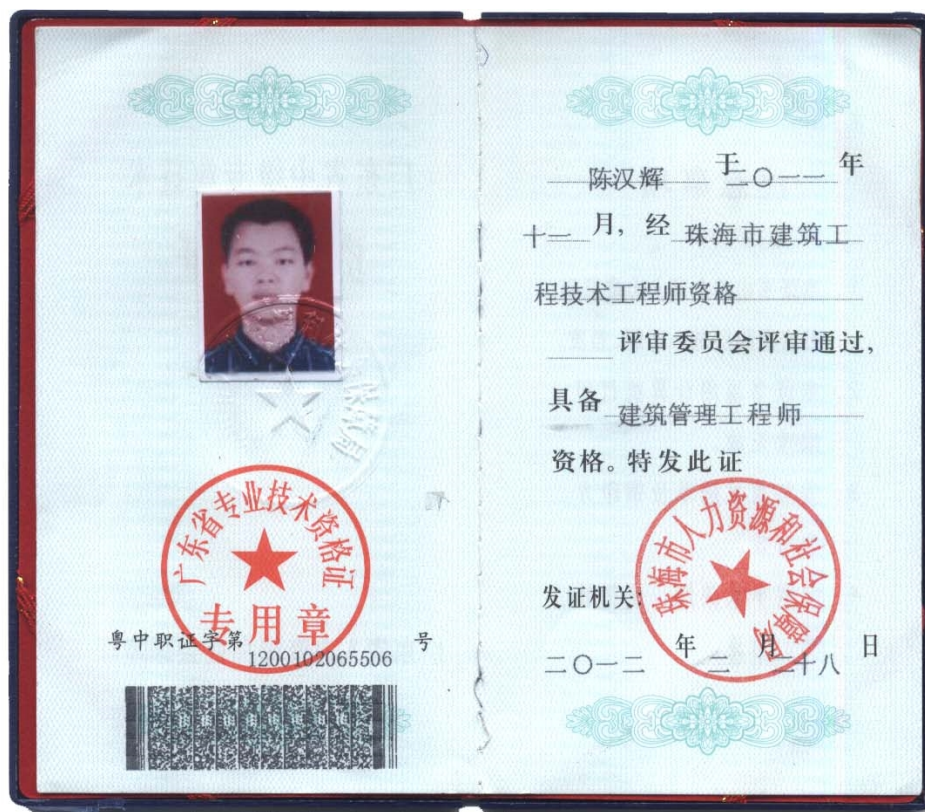 广东省专业技术资格证
专用章
粤中职证字第1200102065506号
陈汉辉 于二〇一一年
十一月，经 珠海市建筑工
程技术工程师资格
评审委员会评审通过，
具备 建筑管理工程师
资格。特发此证
珠海市人力资源和社会保障局
发证机关:
二〇一二年二月二十八日